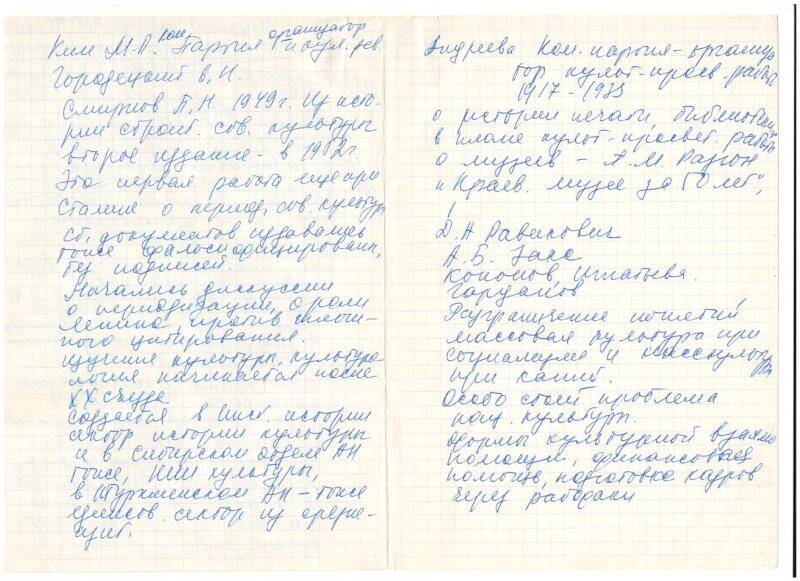 Ким М.П. ком. Партия организатор
и кул. рев.
Городецкий В. Н.
Смирнов П. Н. 1949 г. Из исто-
рии строит. сов. культуры
второе издание - в 1952 г
Это первая работа еще при
Сталине о период. сов. культур
Сб. документов издавались
тоже фальсифицирован,
без подписей.
Начались дискуссии
о периодизации, о роли
Ленина, против
цитирования.
изучения культуры, культуро
логия начинается после
XX съезда
создается в Инст. истории
сектор истории культуры
и в Сибирском отделе АН
тоже, НИИ культуры,
в Туркменском АН - тоже
сектор из
Андреева Ком. партия - организа
тор культ-просв. работы
1917 - 1933
о истории печати, библиотеки
в плане культ-просвет. работы
о музеев - А. М. Разгон
"Краев. музее за 50 лет",
Д. А Равикович
А. Б. Закс
Кононов, Игнатьева
Гарданов
Разграничение понятий
массовая культура при
социализме и масскульту
ра
при капит.
Особо стоит проблема
нац. культур.
Формы культурной взаимо
помощи, финансовая
помощь, подготовка кадров
через рабфаки